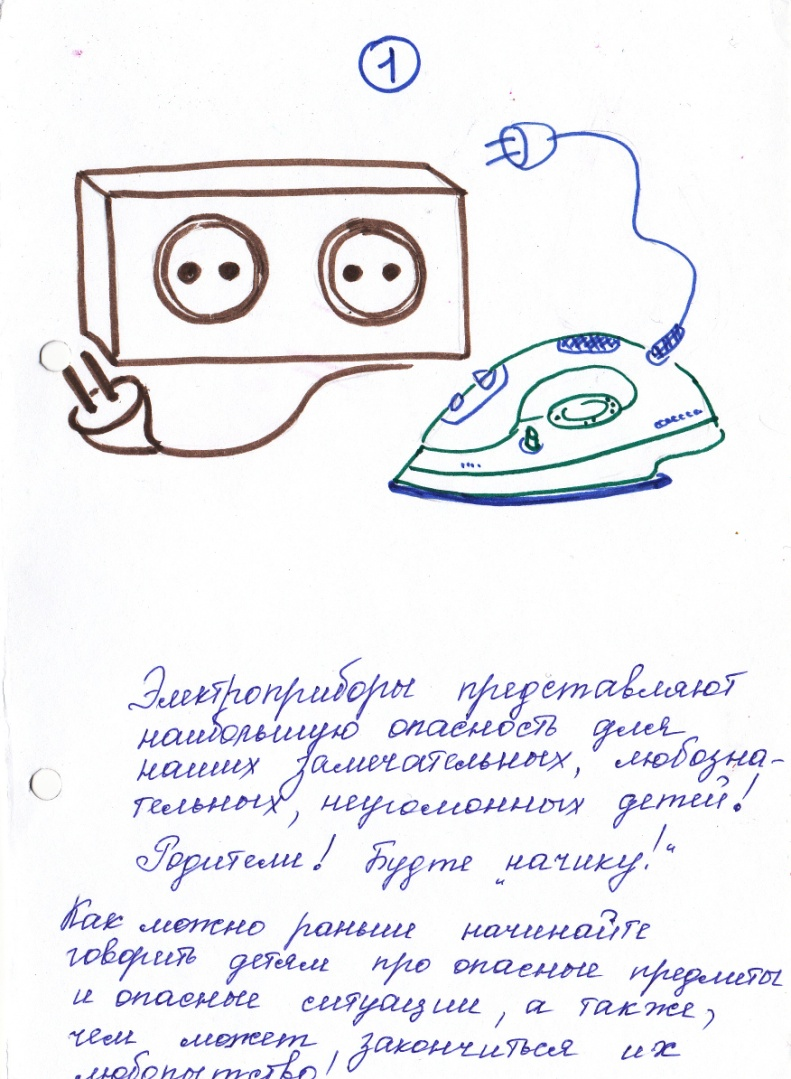 1
Электроприборы представляют
наибольшую опасность для
наших замечательных, любозна-
тельных, неугомонных детей!
Родители! Будте „начику!“
Как можно раньше начинайте
говорить детям про опасные предметы
и опасные ситуации, а также,
чем может закончиться их
любопытство!